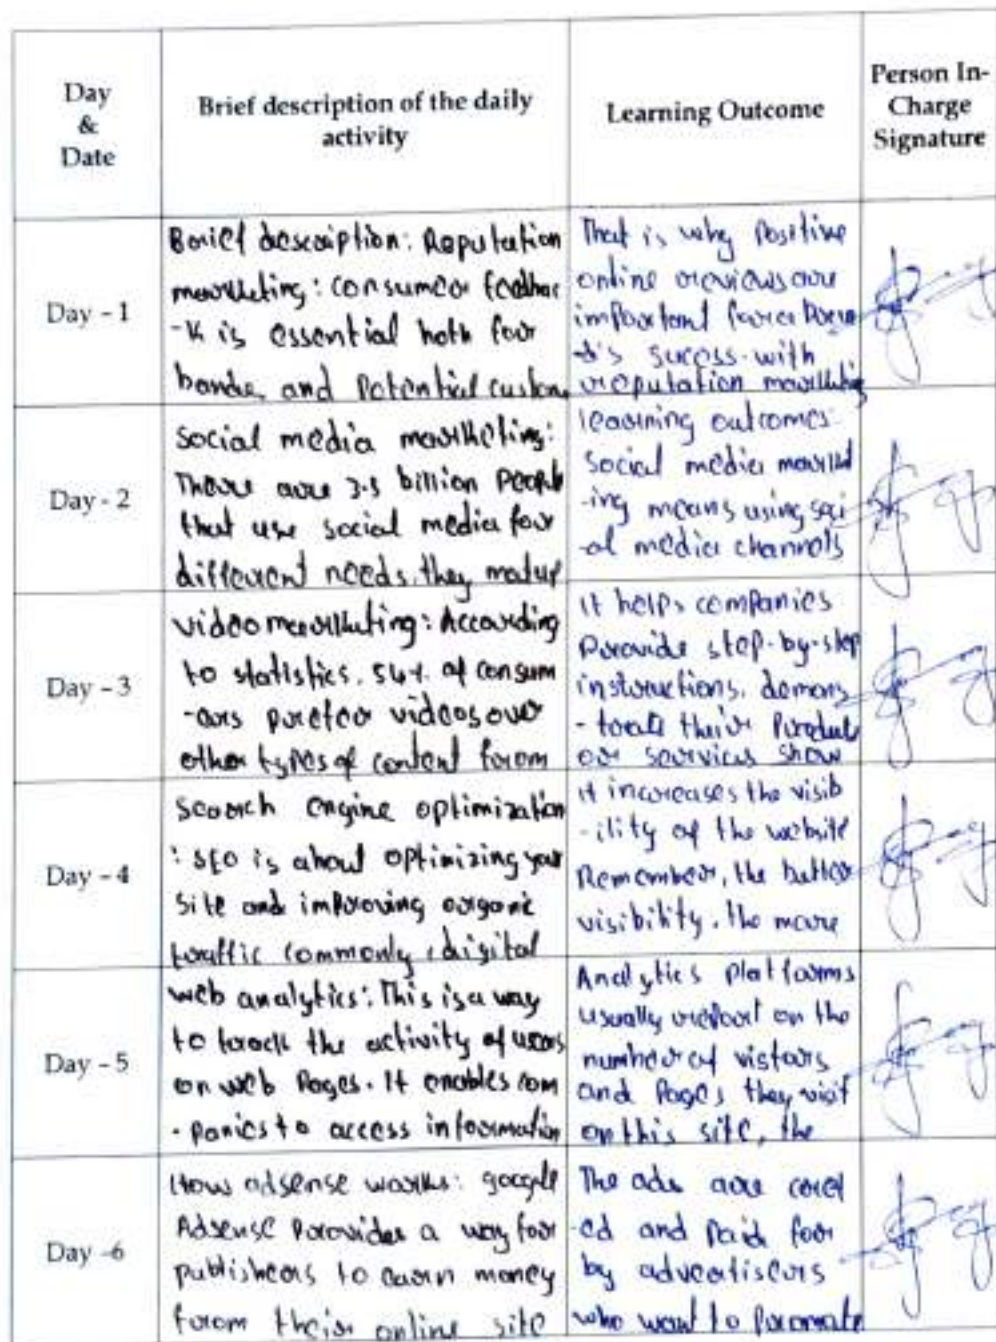 Day
&
Date
Brief description of the daily
activity
Learning Outcome
Person In-
Charge
Signature
Day - 1
Brief description: Reputation
marketing: consumer feedbac
-k is essential both for
brands, and Potential custom
That is why Positive
online reviews are
important for a bran
-d's sucess with
reputation marketing
Day - 2
social media marketing:
There are 3.5 billion People
that use social media for
different needs. they
learning outcomes
social media market
-ing means using soci
-al media channels
Day - 3
video marketing: According
to statistics. 54%. of consum
-ers prefer videos over
other types of content from
it helps companies
Provide step-by-step
instructions, demons
-trate their Products
or services show
Day - 4
search engine optimization
: SEO is about optimizing your
site and improving organic
traffic commonly, digital
it increases the visib
-ility of the website
Remember, the better
visibility, the more
Day - 5
web analytics: This is a way
to track the activity of users
on web Pages. It enables com
-panies to access information
Analytics platforms
usually report on the
number of vistors
and Pages they visit
on this site, the
Day -6
How adsense works: google
Adsense Provides a way for
publishers to earn money
from their online site
The ads are
-ed and Paid for
by advertisers
who want to Promote